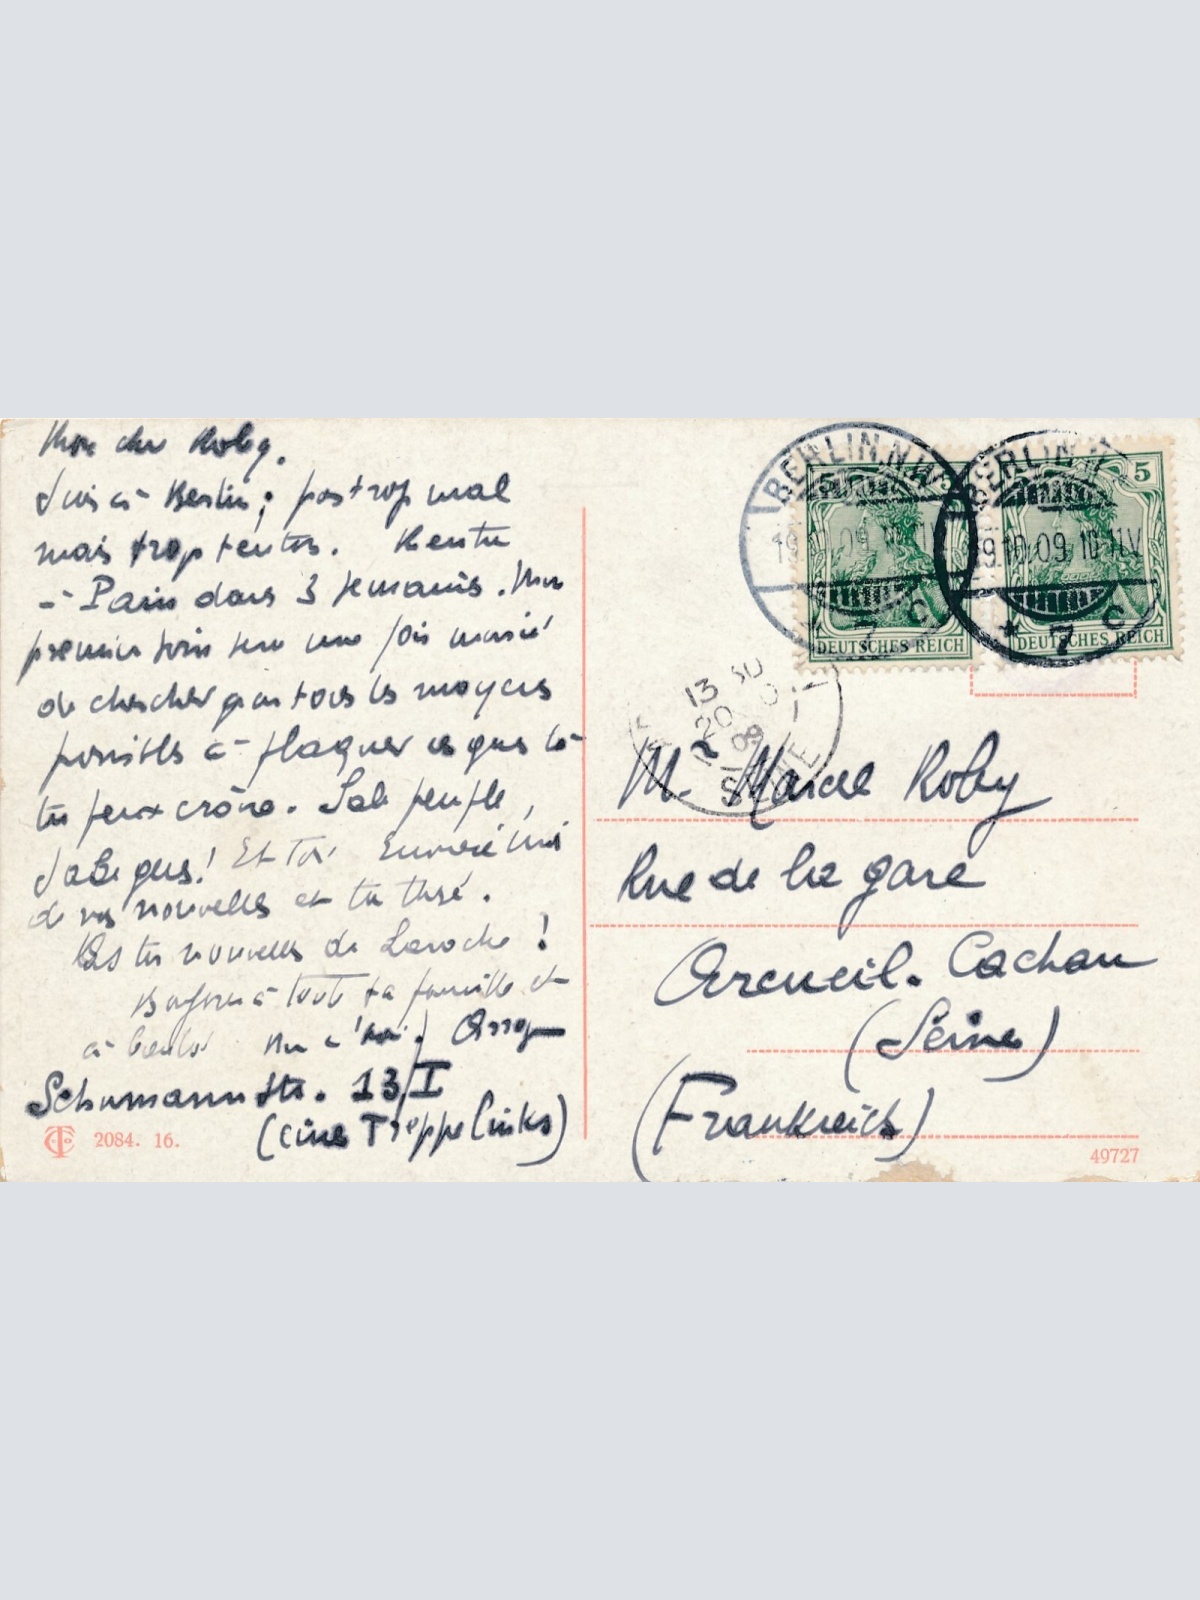 Mon cher Roby,
Suis à Berlin; pas trop mal
mais trop tentés. Rentre
à Paris dans 3 semaines. Mon
premier soin sera une fois marié
de chercher par tous les moyens
possibles à plaquer ces gens là
tu peux crâne. Sale peuple,
sale gens! Et toi Envoie moi
de vos nouvelles et ta thèse.
As tu nouvelles de Laroche!
à toute ta famille et
à bientôt
Schumannstr. 13/I
(eine Treppe links)
2084. 16.
BERLIN N.W.
19.10.09. 10-11V
* 7 c
BERLIN N.W.
19.10.09. 10-11V
* 7 c
5
5
DEUTSCHES REICH
DEUTSCHES REICH
13
20
09
SEINE
Mr Marcel Roby
Rue de la gare
Arcueil. Cachan
(Seine)
(Frankreich)
49727